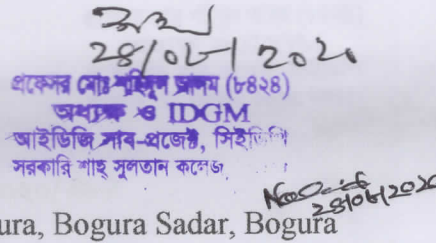 ২৪/০৮/২০২০
প্রফেসর মোঃ শহিদুল আলম (৮৪২৪)
অধ্যক্ষ ও IDGM
আইডিজি সাব-প্রজেক্ট, সিইডিপি
সরকারি শাহ্ সুলতান কলেজ
ura, Bogura Sadar, Bogura